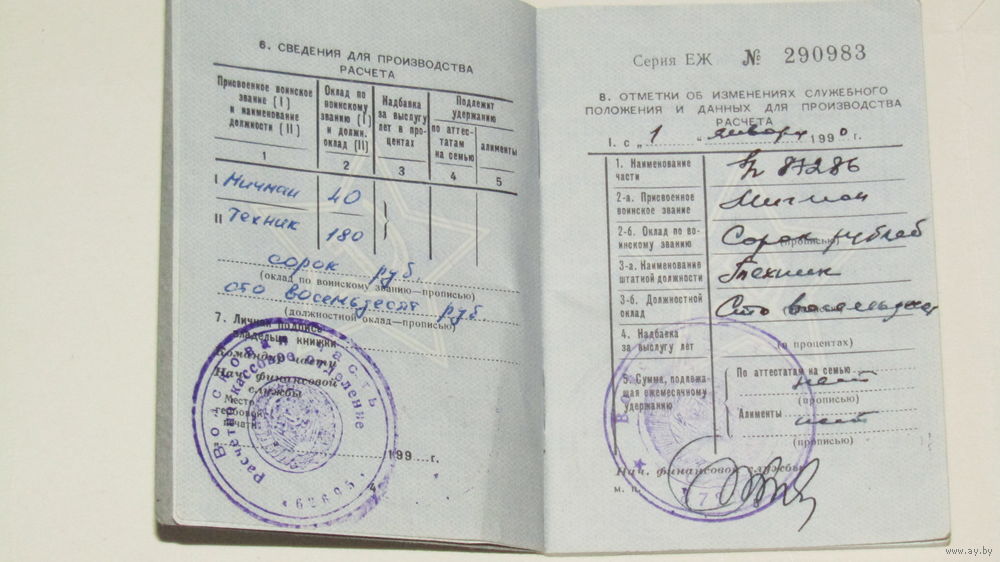 6. СВЕДЕНИЯ ДЛЯ ПРОИЗВОДСТВА
РАСЧЕТА
Присвоенное воинское звание (I) и наименование должности (II)
Оклад по воинскому званию (I) и должн. оклад (II)
Надбавка за выслугу лет в процентах
Подлежит удержанию
по аттестатам на семью
алименты
1 2 3 4 5
I Мичман 40
II Техник 180
сорок руб.
(оклад по воинскому званию—прописью)
сто восемьдесят руб.
(должностной оклад—прописью)
7. Личная подпись
владельца книжки
Командир части
Нач. финансовой
службы
Место
гербовой
печати
199 г.
Войсковая часть
Расчетно-кассовое отделение
Серия ЕЖ № 290983
8. ОТМЕТКИ ОБ ИЗМЕНЕНИЯХ СЛУЖЕБНОГО
ПОЛОЖЕНИЯ И ДАННЫХ ДЛЯ ПРОИЗВОДСТВА
РАСЧЕТА
I. с „1 " января 1990 г.
1. Наименование
части
87286
2-а. Присвоенное
воинское звание
Мичман
2-б. Оклад по во-
инскому званию
Сорок рублей
(прописью)
3-а. Наименование
штатной должности
Техник
3-б. Должностной
оклад
Сто восемьдесят
4. Надбавка
за выслугу лет
(в процентах)
5. Сумма, подлежа-
щая ежемесячному
удержанию
По аттестатам на семью
нет
(прописью)
Алименты
нет
(прописью)
Нач. финансовой службы
м. п.
www.ay.by